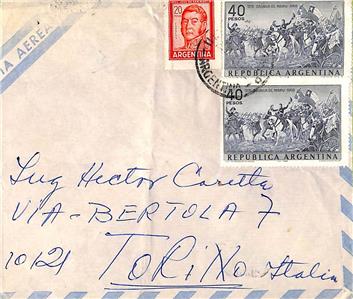 VIA AEREA
20
PESOS
ARGENTINA
40
PESOS
1818 · BATALLA DE MAIPU · 1968
REPUBLICA ARGENTINA
40
PESOS
REPUBLICA ARGENTINA
ARGENTINA
Ing Hector Caretta
VIA-BERTOLA 7
10121 TORINO Italia